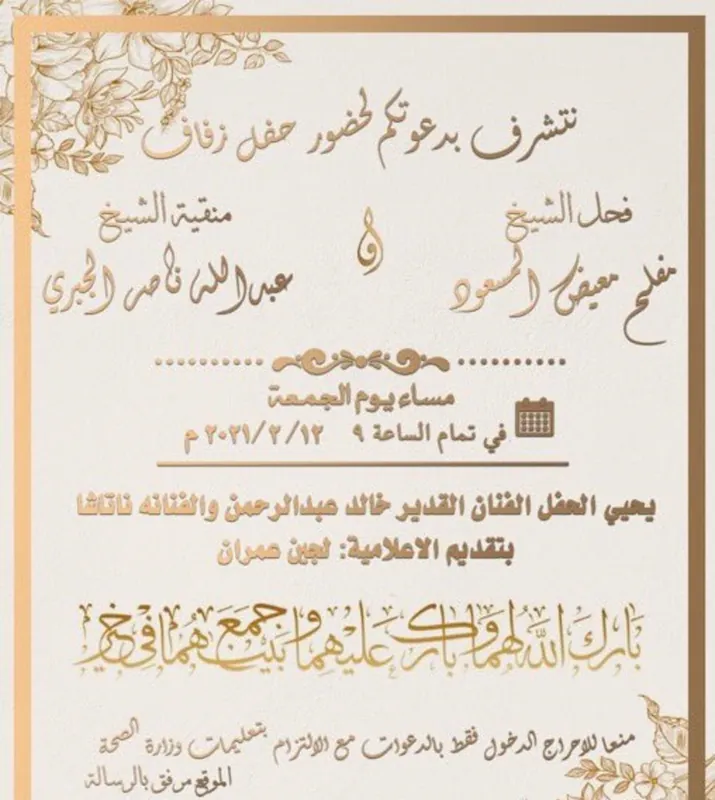 نتشرف بدعوتكم لحضور حفل زفاف
فحل الشيخ
مفلح معيض المسعود
و
منقية الشيخ
عبدالله ناصر الجبري
مساء يوم الجمعة
في تمام الساعة ٩ ٢٠٢١/٢/١٢ م
يحيي الحفل الفنان القدير خالد عبدالرحمن والفنانه ناتاشا
بتقديم الاعلامية: لجين عمران
بَارَكَ اللَّهُ لَهُمَا وَبَارَكَ عَلَيْهِمَا وَجَمَعَ بَيْنَهُمَا فِي خَيْر
منعا للاحراج الدخول فقط بالدعوات مع الالتزام بتعليمات وزارة الصحة
الموقع مرفق بالرسالة